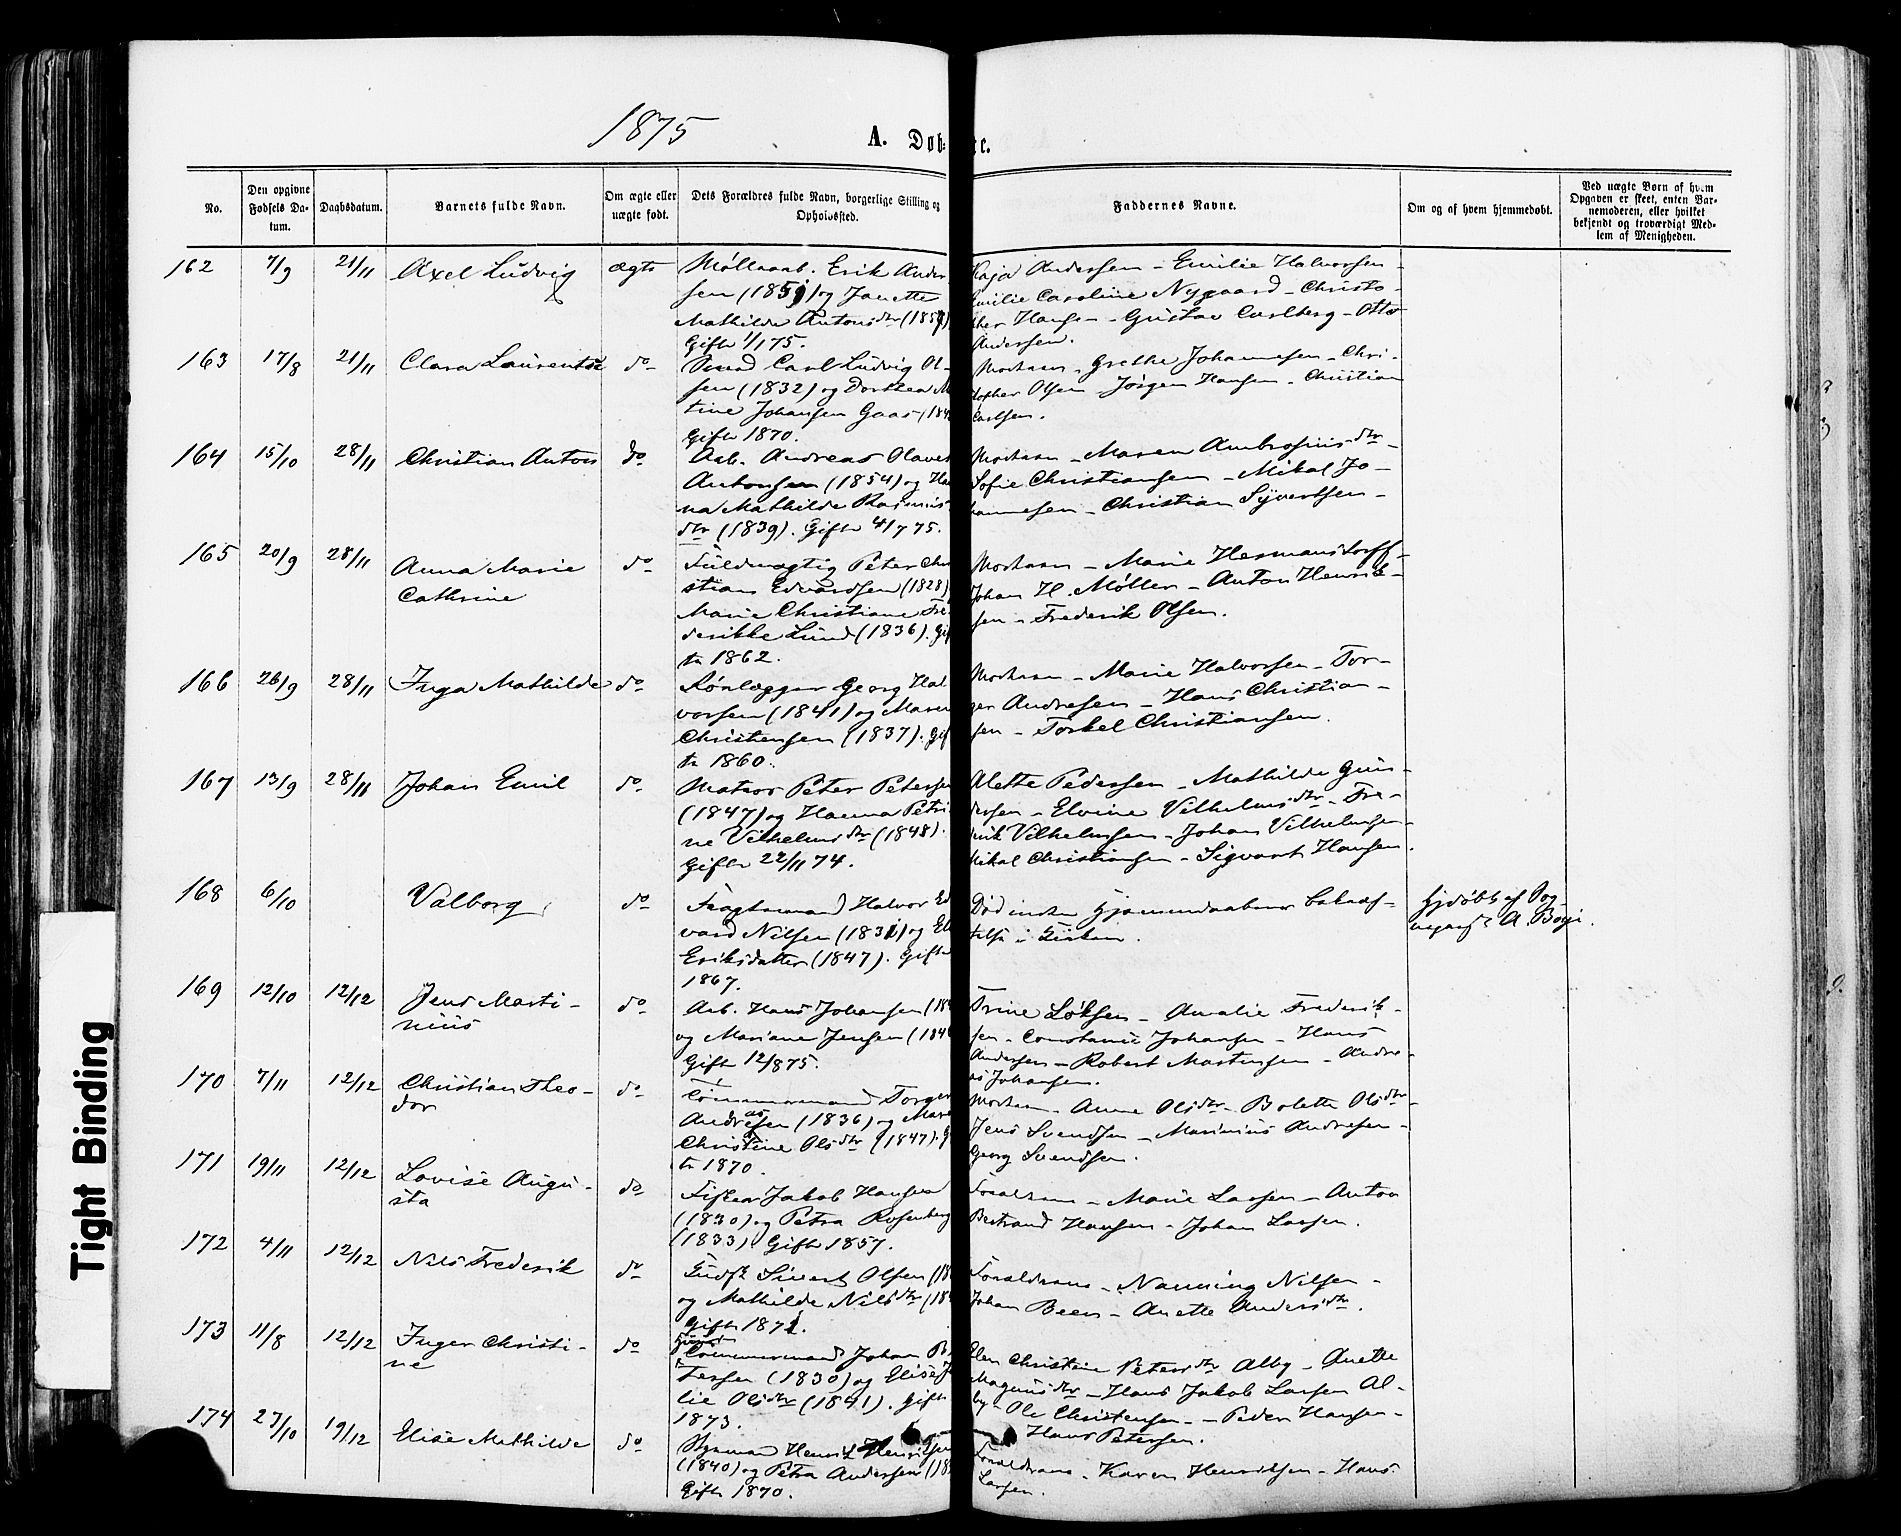 1875
A. Døb-
te.
No.
Den opgivne Fødsels Da-tum.
Daabsdatum.
Barnets fulde Navn.
Om ægte eller uægte født.
Dets Forældres fulde Navn, borgerlige Stilling og Opholdssted.
Faddernes Navne.
Om og af hvem hjemmedøbt.
Ved uægte Børn af hvem Opgaven er skeet, enten Bar-nemoderen, eller hvilket bekjendt og troværdigt Med-lem af Menigheden.
162 7/9 21/11 Axel Ludvig ægte
Erik Ander
sen (1851) og Janette
Mathilde Antonsdtr (185
Gifte 1/1 75.
Kaja Andersen - Emilie Halvorsen -
Emilie Caroline Nygaard - Christo-
pher Hansen - Gustav Carlberg - Otto
Andersen.
163 17/8 21/11 Clara Laurentze do
Carl Ludvig Ol-
sen (1832) og Dorthea M
tine Johansen Gaas (184
Gifte 1870.
Moderen - Grethe Johannesen - Chri-
stopher Olsen - Jørgen Hansen - Christian
Carlsen.
164 15/10 28/11 Christian Anton do
Arb. Andreas Olaves
Antonsen (1854) og Han
na Mathilde Rasmus
dtr (1839). Gifte 4/7 75.
Moderen - Maren Ambrosiusdtr -
Sofie Christiansen - Mikal Jo-
hannesen - Christian Syvertsen -
165 20/9 28/11 Anna Marie
Cathrine do
Fuldmægtig Peter Chri
stian Edvardsen (1828)
Marie Christiane Fre
derikke Lund (1836). Gif
te 1862.
Moderen - Marie Hermansdorff -
Johan H. Møller - Anton Henrik-
sen - Frederik Olsen.
166 26/9 28/11 Inga Mathilde do
Georg Hal
vorsen (1841) og Maren
Christensen (1837). Gif
te 1860.
Moderen - Marie Halvorsen - Tor-
ger Andresen - Hans Christian-
sen - Torkel Christiansen.
167 13/9 28/11 Johan Emil do
Matros Peter Petersen
(1847) og Hanna Petri
ne Vilhelmsdtr (1848).
Gifte 22/11 74.
Alette Pedersen - Mathilde Gun-
dersen - Elvine Vilhelmsdtr - Fre-
derik Vilhelmsen - Johan Vilhelmsen -
Mikal Christiansen - Sigvart Hansen.
168 6/10 Valborg do
Fragtemand Halvor Ed
vard Nilsen (1831) og El
Eriksdatter (1847). Gifte
1867.
Død inden Hjemmedaabens bekræf-
telse i Kirken.
Hjdøbt af
A. Boye.
169 12/10 12/12 Jens Marti-
nius do
Arb. Hans Johansen (184
og Mariane Jensen (184
Gifte 12/8 75.
Trine Løksen - Amalie Frederik-
sen - Constance Johansen - Hans
Andersen - Robert Martinsen - Andre-
as Johansen.
170 7/11 12/12 Christian Theo-
dor do
Tømmermand Torger
Andresen (1836) og Mare
Christine Olsdtr (1847). G
te 1870.
Moderen - Anne Olsdtr - Bolette Olsdtr -
Jens Svendsen - Marinius Andresen -
Georg Svendsen.
171 19/11 12/12 Lovise Augu-
sta do
Fisker Jakob Hansen
(1830) og Petra Rosenberg
(1833). Gifte 1857.
Forældrene - Marie Larsen - Anton
Bertrand Hansen - Johan Larsen.
172 4/11 12/12 Nils Frederik do
Sivert Olsen (18
og Mathilde Nilsdtr (184
Gifte 1871.
Forældrene - Nanning Nilsen -
Johan Been - Anette Andersdtr.
173 11/8 12/12 Inger Christi-
ne do
Tømmermand Johan P
tersen (1830) og Elise J
lie Olsdtr (1841). Gifte
1873.
Elen Christine Petersdtr Alby - Anette
Magnusdtr - Hans Jakob Larsen Al-
by - Ole Christensen - Peder Hansen -
Hans Petersen.
174 27/10 19/12 Elise Mathilde do
Styrmand Henrik Henriksen
(1840) og Petra Andersen (18
Gifte 1870.
Forældrene - Karen Henriksen - Hans
Larsen.
Tight Binding